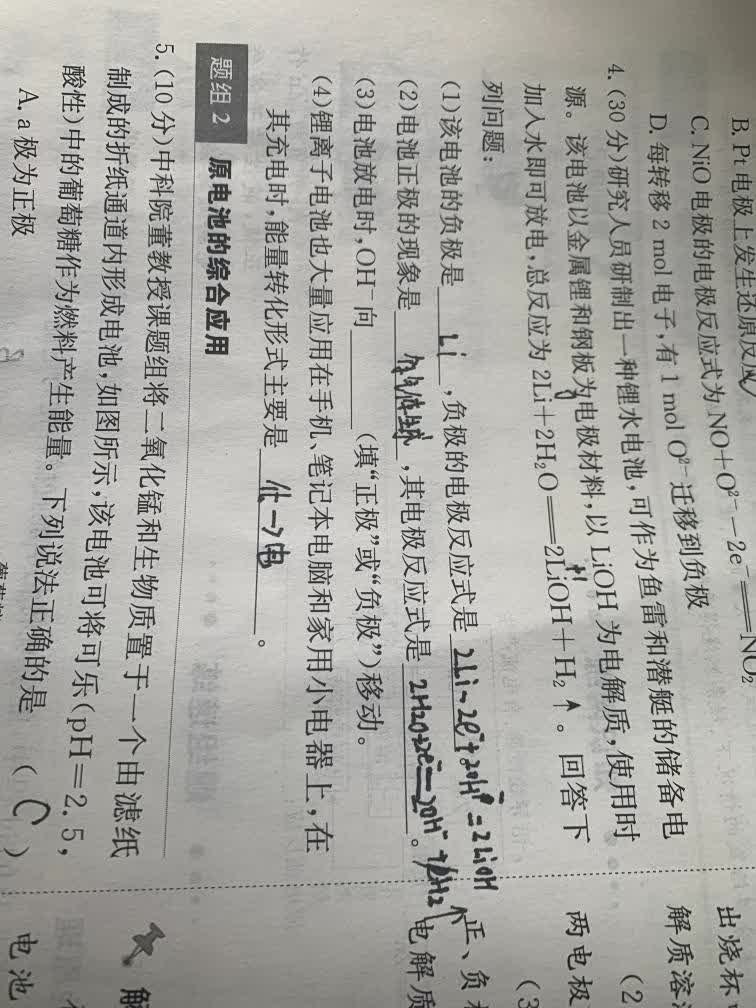 B. Pt 电极上发生还原反应
C. NiO 电极的电极反应式为 NO+O²⁻-2e⁻══NO₂
D. 每转移 2 mol 电子,有 1 mol O²⁻迁移到负极
4. (30 分)研究人员研制出一种锂水电池,可作为鱼雷和潜艇的储备电
源。该电池以金属锂和钢板为电极材料,以 LiOH 为电解质,使用时
加入水即可放电,总反应为 2Li+2H₂O══2LiOH+H₂↑。回答下
列问题:
(1)该电池的负极是 Li ,负极的电极反应式是 2Li-2e⁻+2OH⁻=2LiOH
(2)电池正极的现象是 有气体生成 ,其电极反应式是 2H₂O+2e⁻=2OH⁻+H₂↑ 。
(3)电池放电时,OH⁻向______(填“正极”或“负极”)移动。
(4)锂离子电池也大量应用在手机、笔记本电脑和家用小电器上,在
其充电时,能量转化形式主要是 化→电 。
题组 2 原电池的综合应用
5. (10 分)中科院董教授课题组将二氧化锰和生物质置于一个由滤纸
制成的折纸通道内形成电池,如图所示,该电池可将可乐(pH=2.5,
酸性)中的葡萄糖作为燃料产生能量。下列说法正确的是 ( C )
A. a 极为正极
出烧杯
解质溶
(2
两电极
(3
正、负
电解质
解
电池